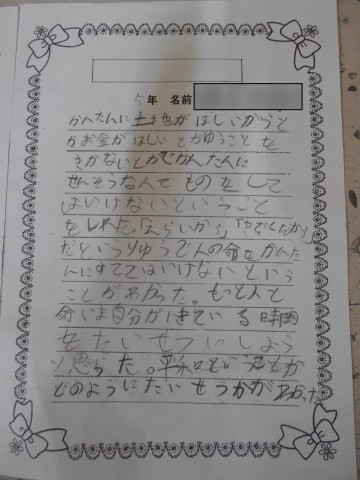 5年 名前
かんたんに土地がほしいからと
かお金がほしいとかゆうことを
きかないとかでかんたんに
せんそうなんてものをして
はいけないということ
をしれた。「えらいから」「
だというりゆうで人の命をかんた
んにすててはいけないという
ことがわかった。もっと人と
命いま自分が生きている時間
をたいせつにしよう
思った。平和ということが
どのようにたいせつかがわかった。